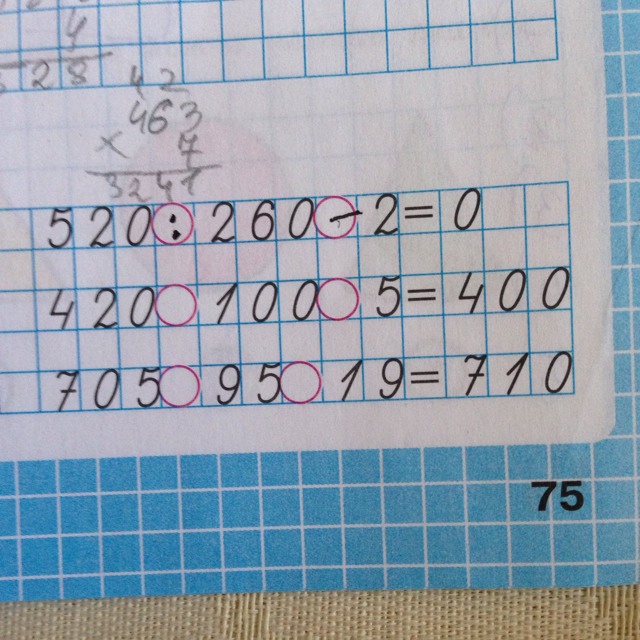 4
528
42
463
× 7
3241
520 : 260 − 2 = 0
420 ○ 100 ○ 5 = 400
705 ○ 95 ○ 19 = 710
75